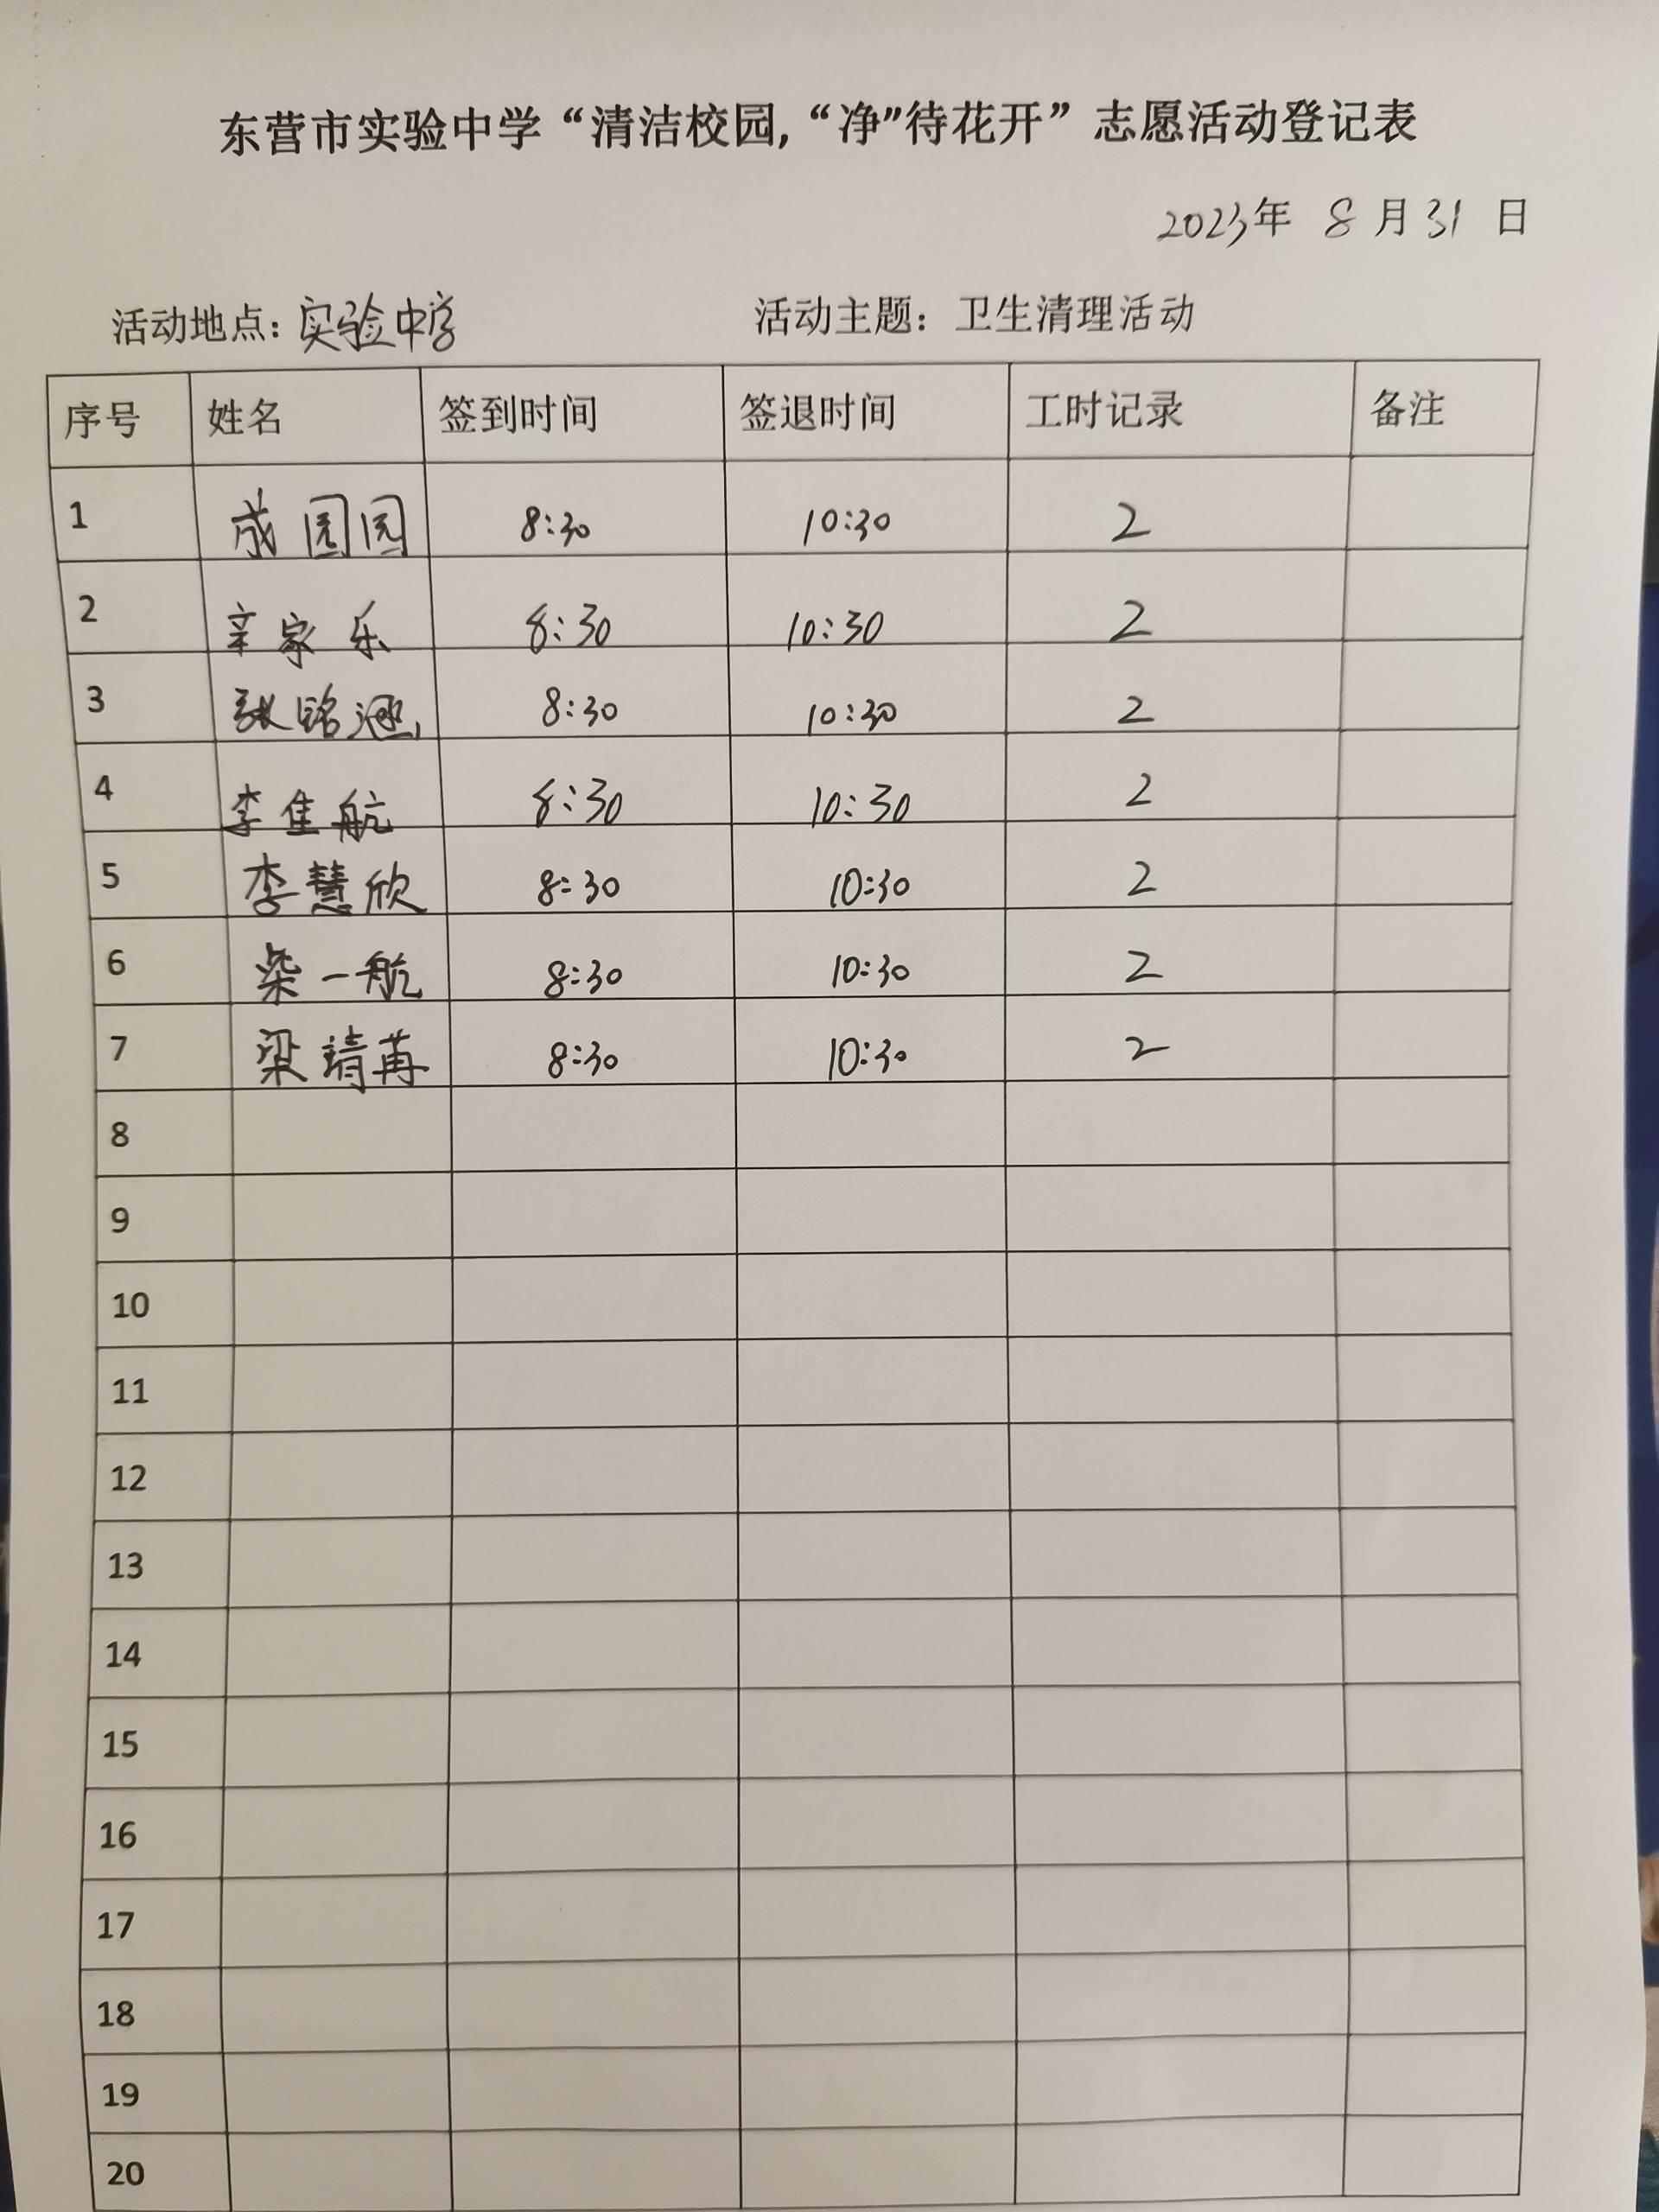 东营市实验中学“清洁校园,“净”待花开”志愿活动登记表
2023年 8月31日
活动地点:实验中学 活动主题:卫生清理活动
序号 姓名 签到时间 签退时间 工时记录 备注
1 成园园 8:30 10:30 2
2 辛家乐 8:30 10:30 2
3 张铭 8:30 10:30 2
4 李隹航 8:30 10:30 2
5 李慧欣 8:30 10:30 2
6 梁一航 8:30 10:30 2
7 梁靖苒 8:30 10:30 2
8
9
10
11
12
13
14
15
16
17
18
19
20